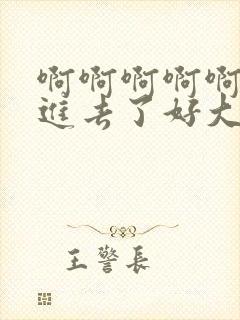 啊啊啊啊啊
進去了好大
王警長